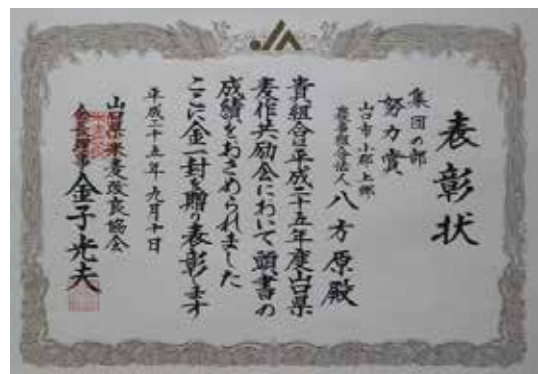 JA
表彰状
集団の部
努力賞
山口市小郡上郷
農事組合法人 八方原殿
貴組合は平成二十五年度山口県
麦作共励会において頭書の
成績をおさめられました
ここに金一封を贈り表彰します
平成二十五年九月十日
山口県米麦改良協会
会長理事 金子光夫